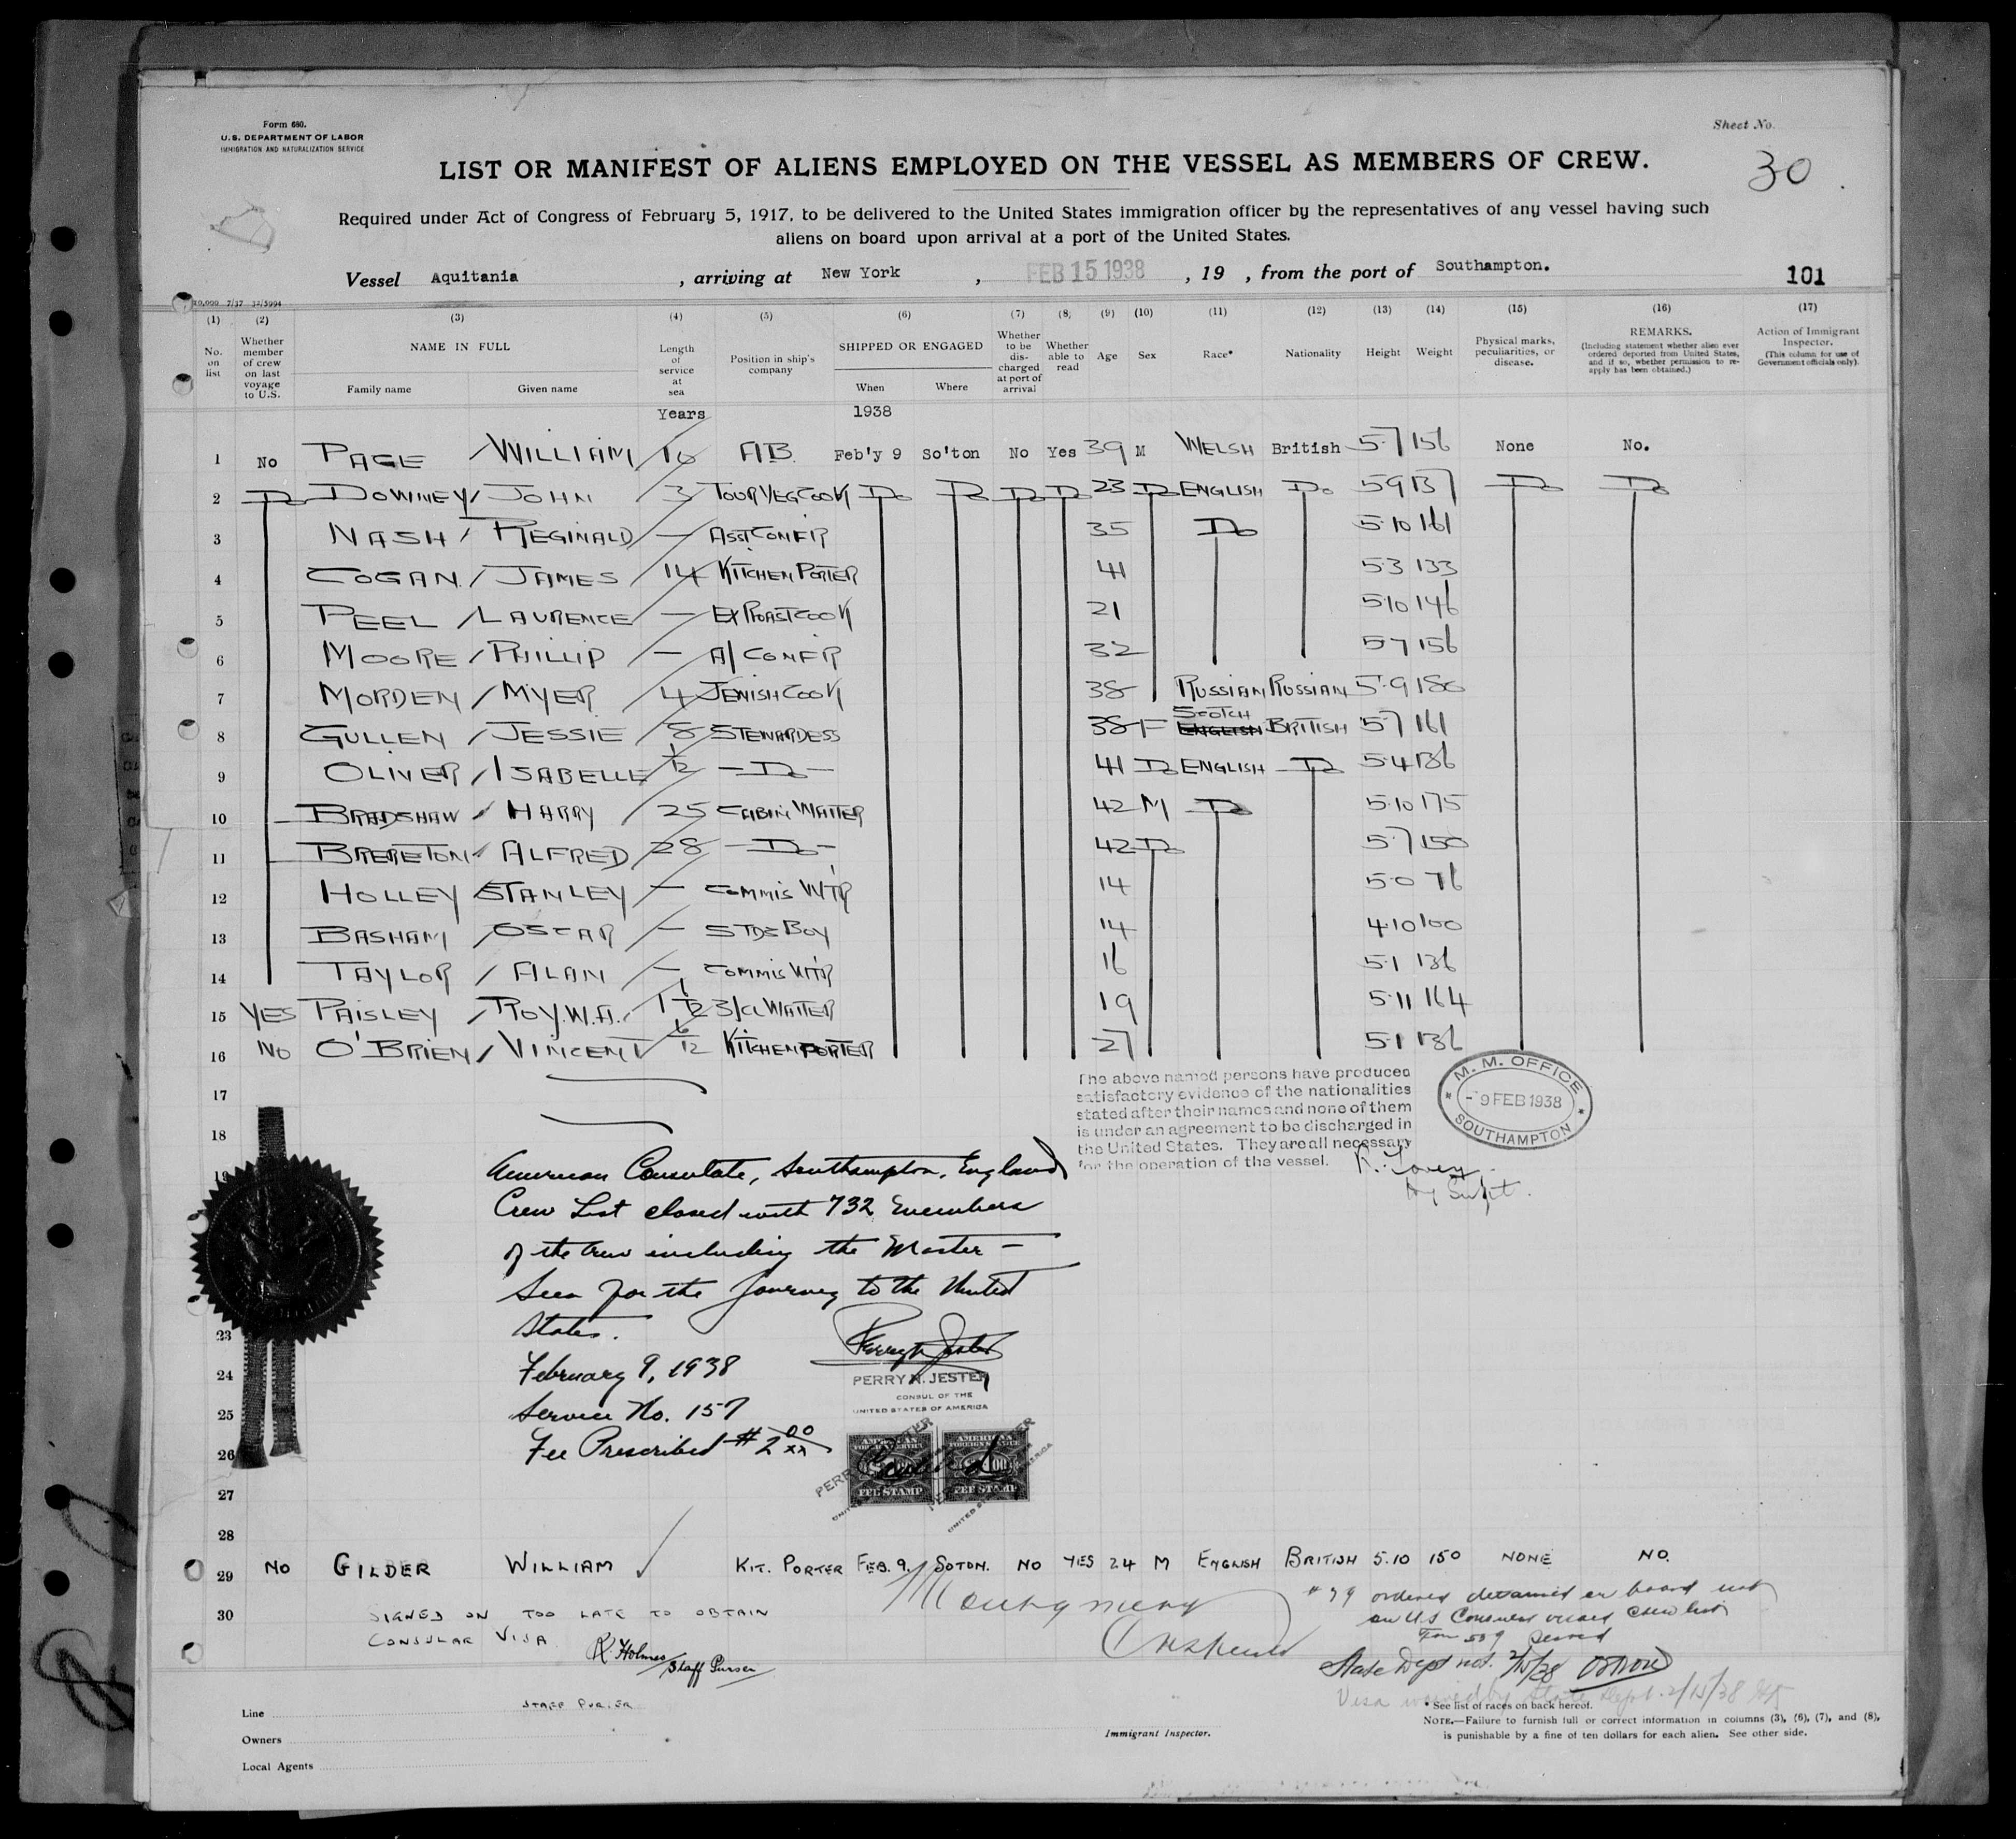 Form 680.
U.S. DEPARTMENT OF LABOR
IMMIGRATION AND NATURALIZATION SERVICE
Sheet No.
30
LIST OR MANIFEST OF ALIENS EMPLOYED ON THE VESSEL AS MEMBERS OF CREW.
Required under Act of Congress of February 5, 1917, to be delivered to the United States immigration officer by the representatives of any vessel having such
aliens on board upon arrival at a port of the United States.
Vessel Aquitania , arriving at New York , FEB 15 1938 , 19 , from the port of Southampton.
101
20,000 7/37 32/5994
(1) (2) (3) (4) (5) (6) (7) (8) (9) (10) (11) (12) (13) (14) (15) (16) (17)
No. on list
Whether member of crew on last voyage to U.S.
NAME IN FULL
Family name Given name
Length of service at sea
Position in ship's company
SHIPPED OR ENGAGED
When Where
Whether to be discharged at port of arrival
Whether able to read
Age Sex Race* Nationality Height Weight
Physical marks, peculiarities, or disease.
REMARKS.
(Including statement whether alien ever ordered deported from United States, and if so, whether permission to re-apply has been obtained.)
Action of Immigrant Inspector.
(This column for use of Government officials only).
Years 1938
1 No PAGE / WILLIAM 16 A.B. Feb'y 9 So'ton No Yes 39 M WELSH British 5·7 156 None No.
2 Do DOWNEY / JOHN 3 TOUR VEG COOK Do Do Do Do 23 Do ENGLISH Do 5·9 137 Do Do
3 NASH / REGINALD — ASST CONFR 35 Do 5·10 161
4 COGAN / JAMES 14 KITCHEN PORTER 41 5·3 133
5 PEEL / LAURENCE — EX ROAST COOK 21 5·10 146
6 MOORE / PHILLIP — A/ CONFR 32 5·7 156
7 MORDEN / MYER 4 JEWISH COOK 38 RUSSIAN RUSSIAN 5·9 180
8 GULLEN / JESSIE 8 STEWARDESS 38 F SCOTCH ENGLISH BRITISH 5·7 161
9 OLIVER / ISABELLE 1/12 — Do — 41 Do ENGLISH Do 5·4 136
10 BRADSHAW / HARRY 25 CABIN WAITER 42 M Do 5·10 175
11 BRERETON / ALFRED 28 — Do — 42 Do 5·7 150
12 HOLLEY STANLEY — COMMIS WTR 14 5·0 76
13 BASHAM / OSCAR — STDS BOY 14 4·10 100
14 TAYLOR / ALAN — COMMIS WTR 16 5·1 136
15 YES PAISLEY / ROY.W.A. 1 1/12 3/CL WAITER 19 5·11 164
16 NO O'BRIEN / VINCENT 6/12 KITCHEN PORTER 27 5·1 136
17
18
The above named persons have produced
satisfactory evidence of the nationalities
stated after their names and none of them
is under an agreement to be discharged in
the United States. They are all necessary
for the operation of the vessel.
M. M. OFFICE
- 9 FEB 1938
SOUTHAMPTON
American Consulate, Southampton, England
Crew List closed with 732 members
of the crew including the Master —
Seen for the journey to the United
States.
February 9, 1938
Service No. 157
Fee Prescribed $2 00/xx
PERRY N. JESTER
CONSUL OF THE
UNITED STATES OF AMERICA
AMERICAN FOREIGN SERVICE FEE STAMP
AMERICAN FOREIGN SERVICE FEE STAMP
23
24
25
26
27
28
29 NO GILDER WILLIAM KIT. PORTER FEB. 9. SOTON. NO YES 24 M ENGLISH BRITISH 5.10 150 NONE NO.
30 SIGNED ON TOO LATE TO OBTAIN
CONSULAR VISA
R. Holmes
Staff Purser
Montgomery
Inspector
ordered detained on board not
on US Consular visaed crew list
Form 509 served
State Dept not. 2/15/38
Visa waived by State Dept. 2/15/38
Line STAFF PURSER
Owners
Local Agents
Immigrant Inspector.
* See list of races on back hereof.
NOTE.—Failure to furnish full or correct information in columns (3), (6), (7), and (8),
is punishable by a fine of ten dollars for each alien. See other side.